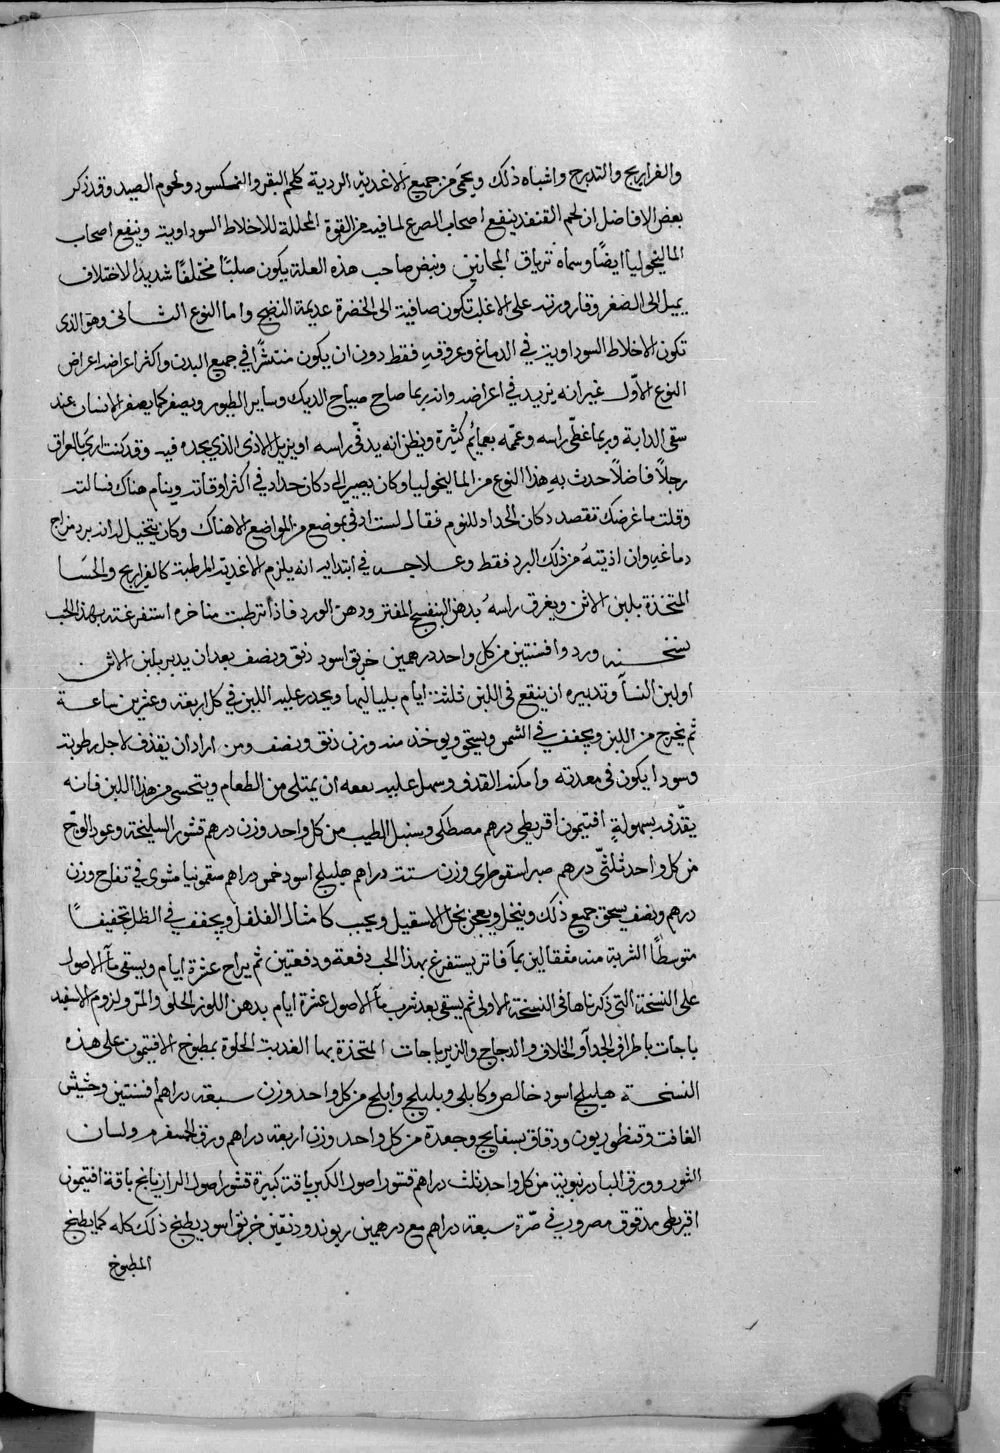 والفراريج والتدرج واشباه ذلك ويحمى من جميع الاغذية الردية كلحم البقر والنمكسود ولحوم الصيد وقد ذكر
بعض الافاضل ان لحم القنفد ينفع اصحاب الصرع لما فيه من القوة المحللة للاخلاط السوداوية وينفع اصحاب
الماليخوليا ايضًا وسماه ترياق المجانين ونبض صاحب هذه العلة يكون صلبًا مختلفًا شديد الاختلاف
يميل الى الصغر وقارورته على الاغلب تكون صافية الى الخضرة عديمة النضج واما النوع الثانى وهو الذى
تكون الاخلاط السوداوية في الدماغ وعروقه فقط دون ان يكون منتشرًا في جميع البدن واكثر اعراضه اعراض
النوع الاوّل غير انه يزيد في اعراضه وانه ربما صاح صياح الديك وساير الطيور ويصفر كما يصفر الانسان عند
سقى الدابة وربما غطّى راسه وعمّمه بعمايُم كثيرة ويظن انه يدفّى راسه او يزيل الاذى الذي يجده فيه وقد كنت ارى بالعراق
رجلًا فاضلًا حدث به هذا النوع من الماليخوليا وكان يصير الى دكان حداد في اكثر اوقاته وينام هناك فسالته
وقلت ما غرضك تقصد دكان الحداد للنوم فقال لست ادفى بموضع من المواضع الا هناك وكان يتخيل له انه برد مزاج
دماغه وان اذيتهُ من ذلك البرد فقط وعلاجه في ابتدايه انه يلزم الاغذية المرطبة كالفراريج والحسا
المتخذة بلبن الاتن ويغرق راسهُ بدهن البنفسج المفتر ودهن الورد فاذا ترطبت مناخره استفرغته بهذا الحب
نسخته ورد وافسنتين من كل واحد درهمين خربق اسود دنق ونصف بعد ان يدبر بلبن الاتن
او لبن النسآ وتدبيره ان ينقع فى اللبن ثلثة ايام بلياليها ويجدر عليه اللبن في كل اربعة وعشرين ساعة
ثم يخرج من اللبن ويجفف في الشمس ويسحق ويوخذ منه وزن دنق ونصف ومن اراد ان يقذف لاجل رطوبة
وسودا يكون فى معدته وامكنه القذف وسهل عليه ان يمتلى من الطعام ويتحسى من هذا اللبن فانه
يقذفه بسهولة افتيمون اقريطى درهم مصطكى وسنبل الطيب من كل واحد وزن درهم قشور السليخة وعود الوج
من كل واحد ثلثى درهم صبر اسقوطرى وزن ستة دراهم هليلج اسود خمس دراهم سقمونيا مشوى في تفاح وزن
درهم ونصف يسحق جميع ذلك وينخل ويعجن بخل الاسقيل ويحبب كامثال الفلفل ويجفف في الظل تجفيفًا
متوسطًا الشربة منه مثقالين بمآ فاتر يستفرغ بهذا الحب دفعة ودفعتين ثم يراح عشرة ايام ويسقى مآ الاصول
على النسخة التى ذكرناها فى النسخة الاولى ثم يسقى بعد شرب مآ الاصول عشرة ايام بدهن اللوز الحلو والمرّ ولزوم الاسفيد
باجات باطراف الجدآ والخلاف والدجاج والزيرباجات المتخذة بها الحلوة بمطبوخ الافتيمون على هذه
النسخة هليلج اسود خالص وكابلى وبليلج وابلج من كل واحد وزن سبعة دراهم افسنتين وحشيش
الغافت وقنطوريون ودقاق بسفايج وجعدة من كل واحد وزن اربعة دراهم ورق ولسان
الثور وورق البادرنبوية من كل واحد ثلث دراهم قشور اصول الكبر باقة كبيرة قشور اصول الرازيانج باقة افتيمون
اقريطى مدقوق مصرور في صرّة سبعة دراهم مع درهمين ريوند ودنقين خربق اسود يطبخ ذلك كله كما يطبخ
المطبوخ